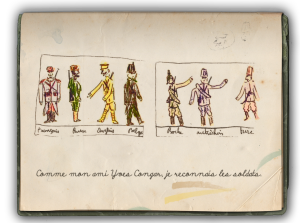 Français Russe Anglais Belge Boche autrichien turc
Comme mon ami Yves Congar, je reconnais les soldats.